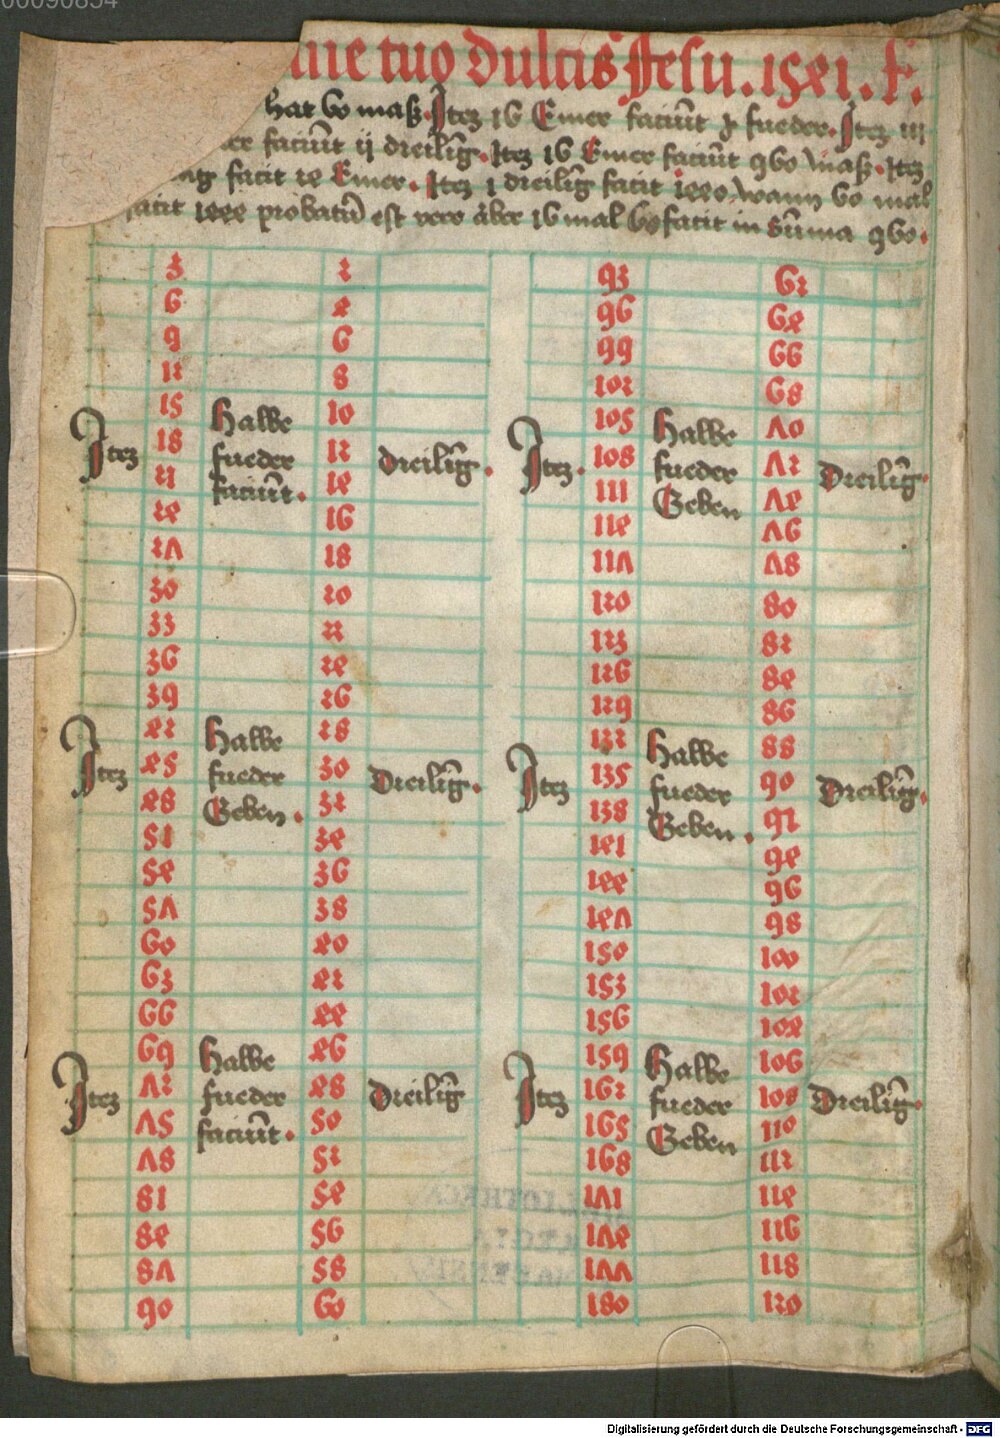 me tuo dulcis Jesu. 1541. f.
hat 60 maß. Itez 16 Emer faciūt 1 fueder. Itez iij
er faciūt ij dreilīg. Itez 16 Emer faciūt 960 maß. Itez
ag facit 24 Emer. Itez 1 dreilīg facit 1440 wann 60 mal
facit 1440 probatū est vere aber 16 mal 60 facit in sūma 960.
3 2 93 62
6 4 96 64
9 6 99 66
12 8 102 68
15 Halbe 10 105 Halbe 70
Itez 18 fueder 12 dreilīg. Itez. 108 fueder 72 Dreilīg.
21 faciūt. 14 111 Geben 74
24 16 114 76
27 18 117 78
30 20 120 80
33 22 123 82
36 24 126 84
39 26 129 86
42 Halbe 28 132 Halbe 88
Itez 45 fueder 30 Dreilīg. Itez 135 fueder 90 Dreilīg.
48 Geben. 32 138 Geben. 92
51 34 141 94
54 36 144 96
57 38 147 98
60 40 150 100
63 42 153 102
66 44 156 104
69 Halbe 46 159 Halbe 106
Itez 72 fueder 48 Dreilīg Itez 162 fueder 108 Dreilīg.
75 faciūt. 50 165 Geben 110
78 52 168 112
81 54 171 114
84 56 174 116
87 58 177 118
90 60 180 120
Digitalisierung gefördert durch die Deutsche Forschungsgemeinschaft - DFG